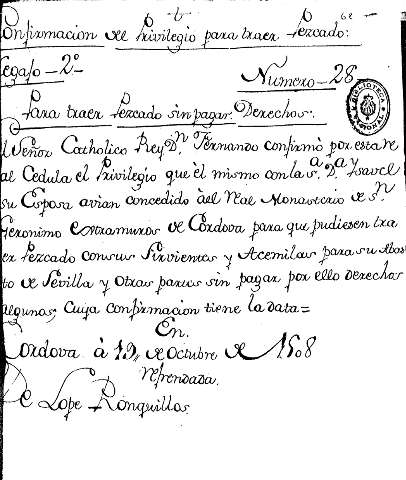 Confirmacion del Privilegio para traer Pezcado:
Legajo - 2º -
Numero - 28
Para traer Pezcado sin pagar Derechos.
El Señor Catholico Rey Dn. Fernando confirmò por esta Re
al Cedula el Privilegio que èl mismo con la sa. Da. Ysavel
su Esposa avian concedido àel Real Monasterio de Sn
Geronimo extramuros de Cordova para que pudiesen tra
er Pezcado con sus Sirvientes y Acemilas para su abas
to de Sevilla y otras partes sin pagar por ello derechos
algunos; Cuia confirmacion tiene la data =
En
Cordova à 19,, de Octubre de 1508
refrendada.
De Lope Ronquillos
BIBLIOTECA